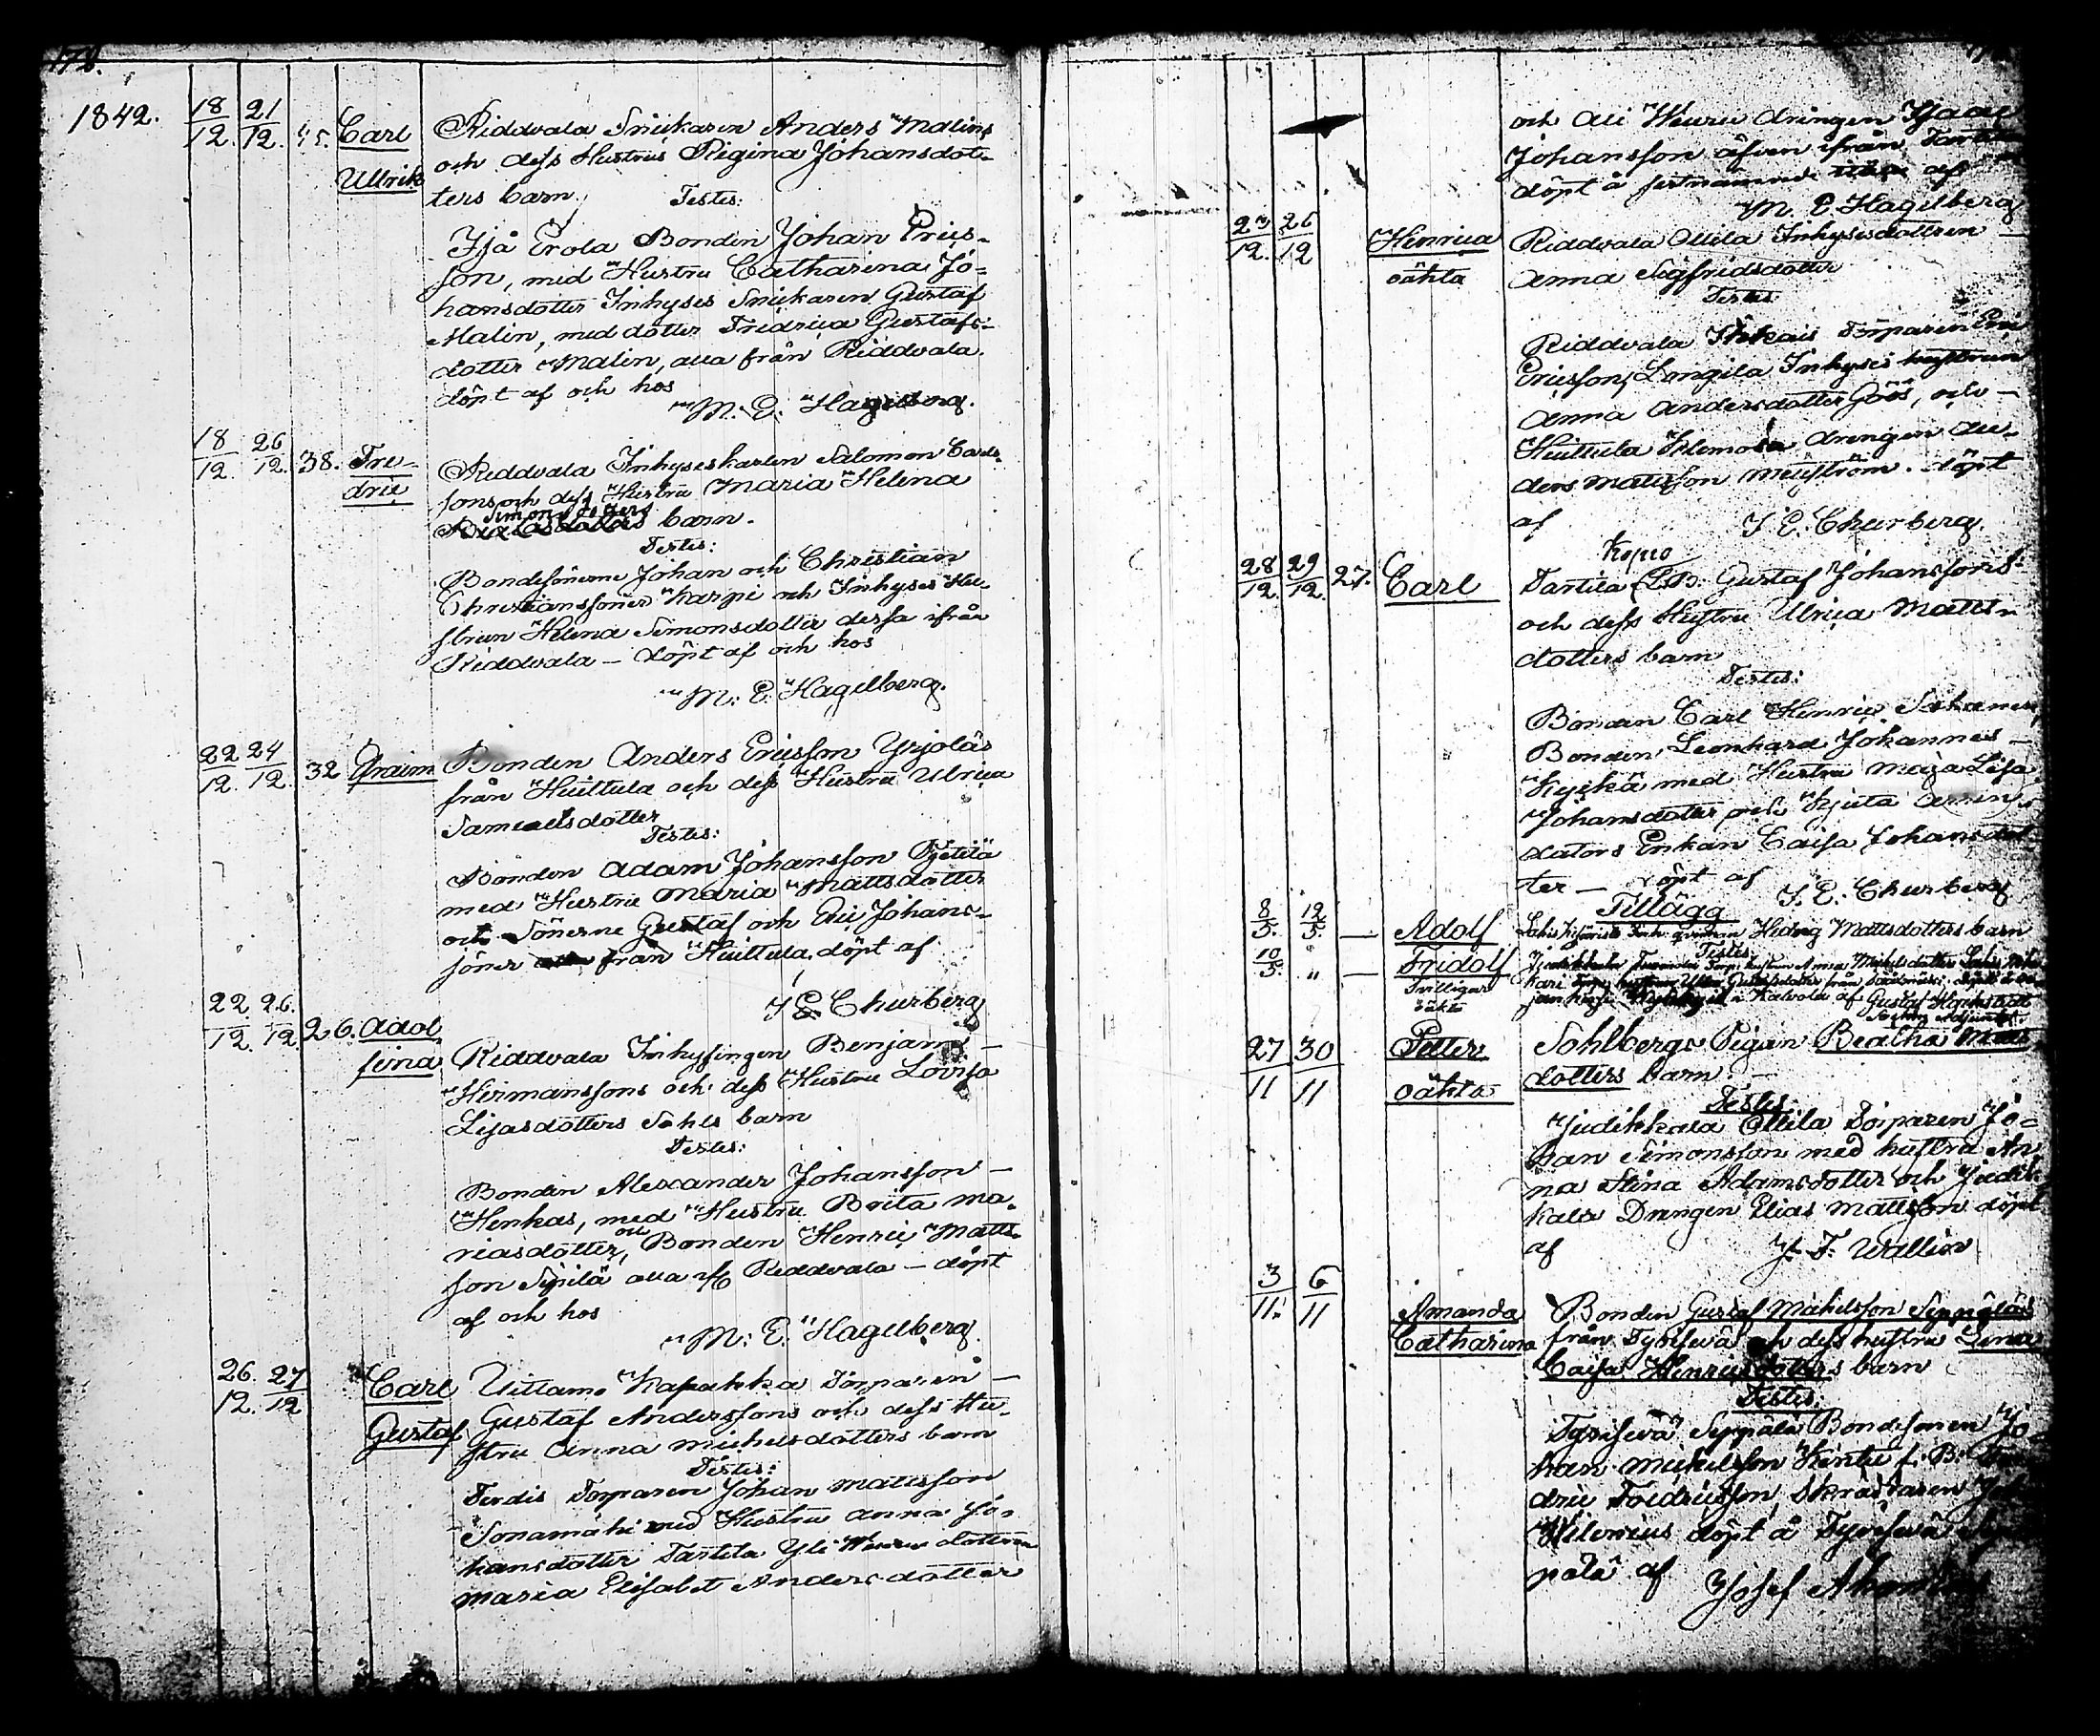 172.
1842.
18/12. 21/12. 45. Carl Ullrik
Riddvala Snickaren Anders Malins
och dess Hustrus Rigina Johansdot-
ters barn,
Testes:
Ijå Erola Bonden Johan Erics-
son, med Hustru Catharina Jo-
hansdotter Inhyses Snickaren Gustaf
Malin, med dotter Fridrica Gustafs-
dotter Malin, alla från Riddvala.
döpt af och hos
M. E. Hagelberg.
18/12. 26/12. 38. Fre-
dric
Riddvala Inhyseskarlen Salomon Carls-
sons och dess Hustru Maria Helena
Simonsdotters
barn.
Testes:
Bondesönerne Johan och Christian
Christianssöner Karpi och Inhyses Hu-
strun Helena Simonsdotter dessa ifrån
Riddvala — döpt af och hos
M: E: Hagelberg.
22/12. 24/12. 32 Efraim
Bonden Anders Ericsson Yrjoläs
från Huittula och dess Hustru Ulrica
Samuelsdotter
Testes:
Bonden Adam Johansson Pjetilä
med Hustru Maria Mattsdotter
och Sönerne Gustaf och Eric Johans-
söner från Huittula, döpt af
J. E. Churberg
22/12. 26/12. 26. Adol
fina
Riddvala Inhysingen Benjam
Hermanssons och dess Hustru Lovisa
Lisasdotters Sahls barn
Testes:
Bonden Alexander Johansson —
Henkas, med Hustru Brita Ma-
riasdotter, och Bonden Henric Matts-
son Sipilä alla ifr Riddvala — döpt
af och hos
M: E. Hagelberg.
26/12. 27/12 Carl
Gustaf
Uittamo Kapakka Torparen —
Gustaf Anderssons och dess Hu-
stru Anna Michelsdotters barn
Testes:
Terdis Torparen Johan Mattsson
Sonamäki med Hustru Anna Jo-
hansdotter Tartila Yli Heuru dottren
Maria Elisabet Andersdotter
och Ali Heuru drängen Isaac
Johansson äfven ifrån Tartila
döpt å förstnämnde af
M. E. Hagelberg
23/12. 26/12 Henrica
oäkta
Riddvala Ollila Inhysesdottren —
Anna Sigfridsdotter
Testes
Riddvala Torparen Eric
Ericsson, Längila Inhyses hustrun
Anna Andersdotter Göös, och —
Huittula Klemola drängen An-
ders Mattsson Myström. döpt
af
J. E. Churberg.
28/12. 29/12. 27. Carl
Kopio
Tartila LB: Gustaf Johanssons
och dess Hustru Ulrica Matts-
dotters barn
Testes:
Bonden Carl Henric
Bonden Leonhard Johannes —
Kyckä med Hustru Maja Lisa
Johansdotter och Kjuta
dators Enkan Caisa Johansdot-
ter — döpt af
J. E. Churberg
Tillägg
8/5. 12/5. — Adolf
10/5. " — Fridolf
Tvillingar
oäkta
Inh. qvinnan Hedvig Mattsdotters barn
Testes
Anna Michelsdotter
Gustafsdotter från
i Kalvola af Gustaf
Adjunct.
27/11 30/11 Petter
oäkta
Sohlbergs Pigan Beatha Mats
dotters barn. —
Testes
Judikkala Ollila Torparen Jo-
han Simonsson med hustru An-
na Stina Adamsdotter och Judik-
kala Drängen Elias Mattsson döpt
af
J. F. Wallin
3/11. 6/11 Amanda
Catharina
Bonden Gustaf Michelsson Seppäläs
från Tyrisevä och dess hustru Lena
Caisa Henricsdotters barn
Testes:
Tyrisevä Seppälä Bondesonen Jo-
han Michelsson Kentu f. B.
dric Fredricsson, Skräddaren
Hilenius döpt å Tyrisevä Sep
pälä af
Josef